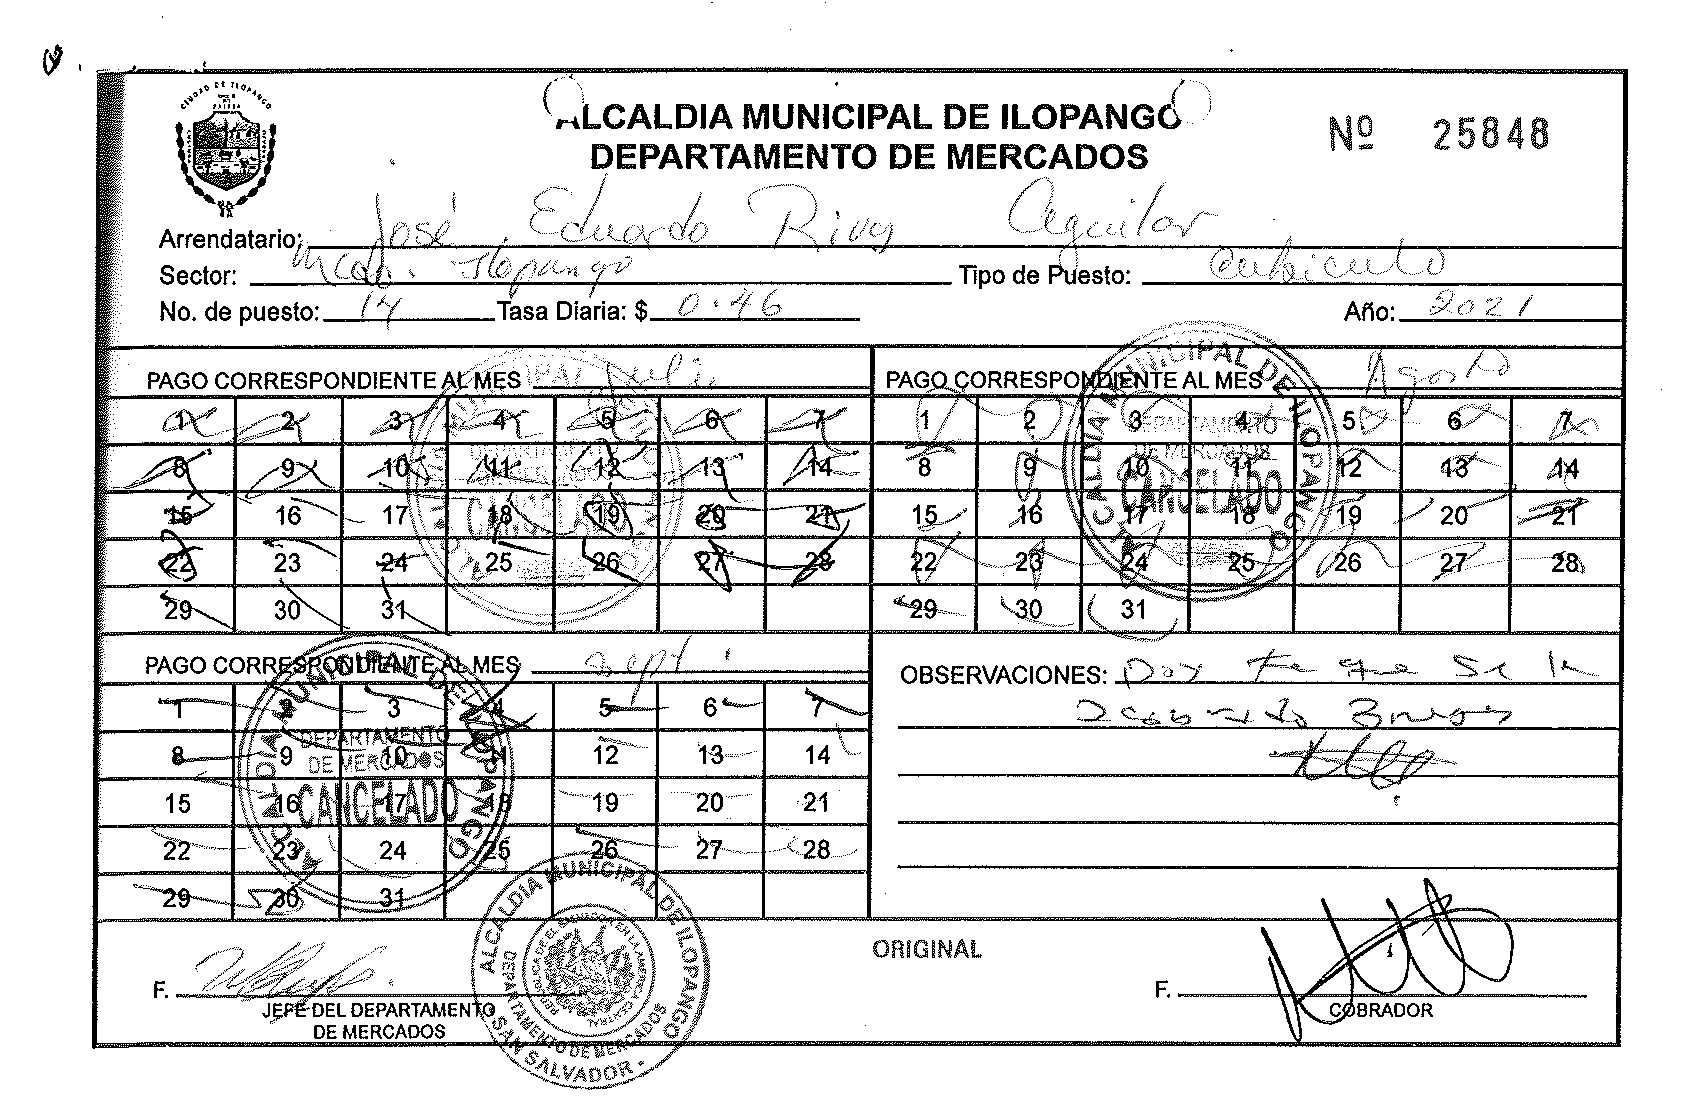 CIUDAD DE ILOPANGO
ALCALDIA MUNICIPAL DE ILOPANGO
DEPARTAMENTO DE MERCADOS
Nº 25848
Arrendatario: José Eduardo Rivas Aguilar
Sector: Mcdo. Ilopango Tipo de Puesto: Cubiculo
No. de puesto: 14 Tasa Diaria: $ 0.46 Año: 2021
PAGO CORRESPONDIENTE AL MES Julio
1 2 3 4 5 6 7
8 9 10 11 12 13 14
15 16 17 18 19 20 21
22 23 24 25 26 27 28
29 30 31
CANCELADO
PAGO CORRESPONDIENTE AL MES Agosto
1 2 3 4 5 6 7
8 9 10 11 12 13 14
15 16 17 18 19 20 21
22 23 24 25 26 27 28
29 30 31
ALCALDIA MUNICIPAL DE ILOPANGO
DEPARTAMENTO
DE MERCADOS
CANCELADO
PAGO CORRESPONDIENTE AL MES Sept.
1 2 3 4 5 6 7
8 9 10 11 12 13 14
15 16 17 18 19 20 21
22 23 24 25 26 27 28
29 30 31
ALCALDIA MUNICIPAL DE ILOPANGO
DEPARTAMENTO
DE MERCADOS
CANCELADO
OBSERVACIONES: Doy Fe que se le
ORIGINAL
F.
JEFE DEL DEPARTAMENTO
DE MERCADOS
ALCALDIA MUNICIPAL DE ILOPANGO
DEPARTAMENTO DE MERCADOS
REPUBLICA DE EL SALVADOR EN LA AMERICA CENTRAL
SAN SALVADOR -
F.
COBRADOR